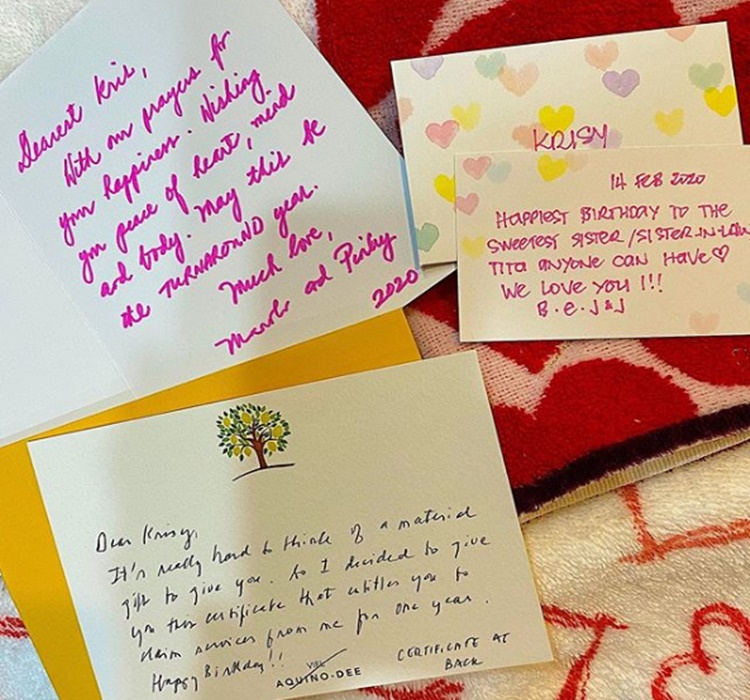 Dearest Kris,
With our prayers for
your happiness. Wishing
you peace of heart, mind
and body. May this be
the TURNAROUND year.
Much love,
and Pinky
2020
KRISY
14 FEB 2020
HAPPIEST BIRTHDAY TO THE
SWEETEST SISTER/SISTER-IN-LAW
TITA ANYONE CAN HAVE♡
WE LOVE YOU!!!
B. E. J & J
Dear Krisy,
It's really hard to think of a material
gift to give you. So I decided to give
you this certificate that entitles you to
claim services from me for one year.
Happy Birthday!!
VIEL
AQUINO-DEE
CERTIFICATE AT
BACK